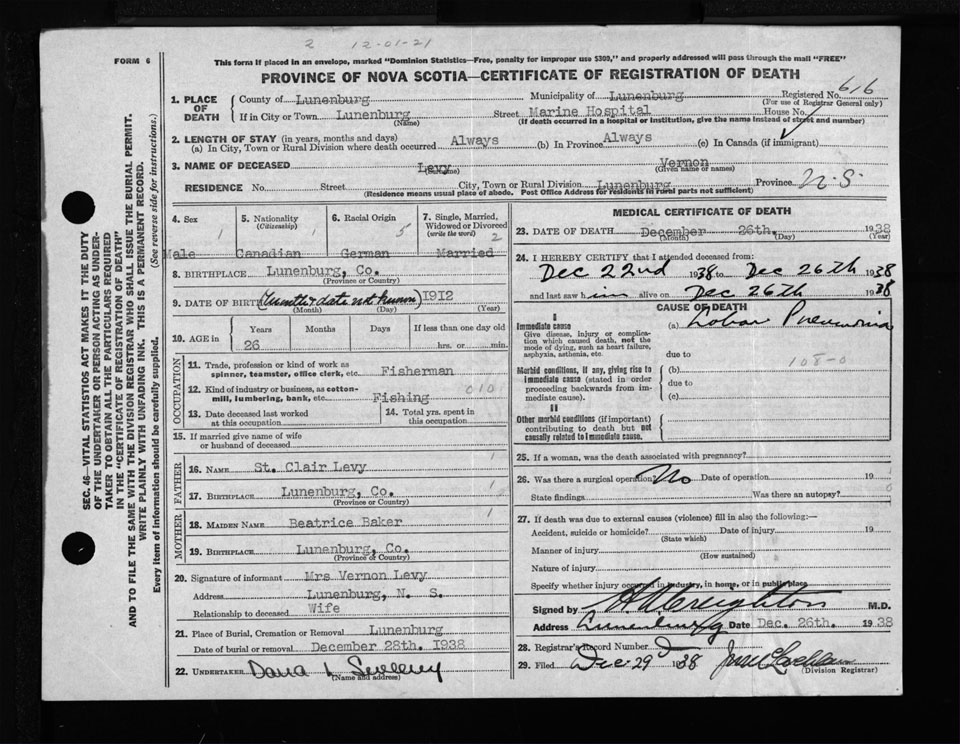 2 12-01-21
FORM 6
This form if placed in an envelope, marked "Dominion Statistics—Free, penalty for improper use $300," and properly addressed will pass through the mail "FREE"
PROVINCE OF NOVA SCOTIA—CERTIFICATE OF REGISTRATION OF DEATH
SEC. 46—VITAL STATISTICS ACT MAKES IT THE DUTY
OF THE UNDERTAKER OR PERSON ACTING AS UNDER-
TAKER TO OBTAIN ALL THE PARTICULARS REQUIRED
IN THE "CERTIFICATE OF REGISTRATION OF DEATH"
AND TO FILE THE SAME WITH THE DIVISION REGISTRAR WHO SHALL ISSUE THE BURIAL PERMIT.
WRITE PLAINLY WITH UNFADING INK. THIS IS A PERMANENT RECORD.
Every item of information should be carefully supplied. (See reverse side for instructions.)
1. PLACE OF DEATH County of Lunenburg Municipality of Lunenburg Registered No. 616
(For use of Registrar General only)
If in City or Town Lunenburg Street Marine Hospital House No.
(Name) (If death occurred in a hospital or institution, give the name instead of street and number)
2. LENGTH OF STAY (in years, months and days)
(a) In City, Town or Rural Division where death occurred Always (b) In Province Always (c) In Canada (if immigrant)
3. NAME OF DECEASED Levy Vernon
(Surname) (Given name or names)
RESIDENCE No. Street City, Town or Rural Division Lunenburg Province N.S.
(Residence means usual place of abode. Post Office Address for residents in rural parts not sufficient)
4. Sex 5. Nationality (Citizenship) 6. Racial Origin 7. Single, Married, Widowed or Divorced (write the word)
1 1 5 2
Male Canadian German Married
8. BIRTHPLACE Lunenburg, Co.
(Province or Country)
9. DATE OF BIRTH (month & date not known) 1912
(Month) (Day) (Year)
10. AGE in Years Months Days If less than one day old
26 hrs. or min.
OCCUPATION
11. Trade, profession or kind of work as spinner, teamster, office clerk, etc. Fisherman
12. Kind of industry or business, as cotton-mill, lumbering, bank, etc. Fishing 010
13. Date deceased last worked at this occupation 14. Total yrs. spent in this occupation
15. If married give name of wife or husband of deceased
FATHER
16. NAME St. Clair Levy 1
17. BIRTHPLACE Lunenburg, Co. 1
(Province or Country)
MOTHER
18. MAIDEN NAME Beatrice Baker 1
19. BIRTHPLACE Lunenburg, Co.
(Province or Country)
20. Signature of informant Mrs Vernon Levy
Address Lunenburg, N. S.
Relationship to deceased Wife
21. Place of Burial, Cremation or Removal Lunenburg
Date of burial or removal December 28th. 1938
22. UNDERTAKER
(Name and address)
MEDICAL CERTIFICATE OF DEATH
23. DATE OF DEATH December 26th. 1938
(Month) (Day) (Year)
24. I HEREBY CERTIFY that I attended deceased from:
Dec 22nd 1938 to Dec 26th 1938
and last saw him alive on Dec 26th 1938
CAUSE OF DEATH
I
Immediate cause (a) Lobar Pneumonia
Give disease, injury or complication which caused death, not the mode of dying, such as heart failure, asphyxia, asthenia, etc.
due to 108-0
Morbid conditions, if any, giving rise to immediate cause (stated in order proceeding backwards from immediate cause).
(b)
due to
(c)
II
Other morbid conditions (if important) contributing to death but not causally related to immediate cause.
25. If a woman, was the death associated with pregnancy?
26. Was there a surgical operation? No Date of operation 19
State findings Was there an autopsy?
27. If death was due to external causes (violence) fill in also the following:—
Accident, suicide or homicide? Date of injury 19
(State which)
Manner of injury
(How sustained)
Nature of injury
Specify whether injury occurred in industry, in home, or in public place
Signed by H A Creighton M.D.
Address Lunenburg Date Dec. 26th. 1938
28. Registrar's Record Number
29. Filed Dec. 29 38
(Division Registrar)